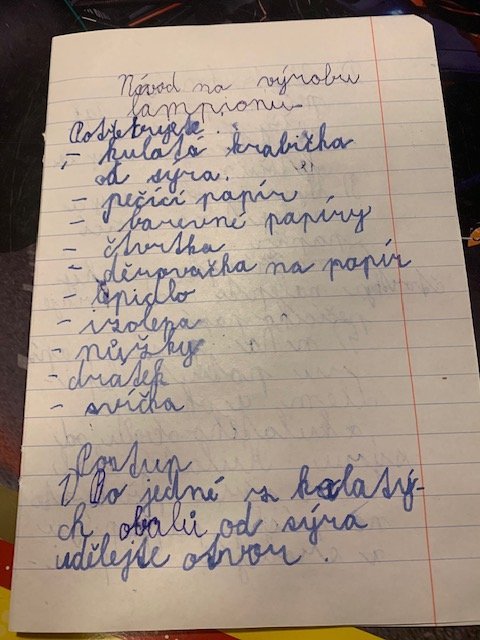 Návod na výrobu
lampionu
Potřebujete:
- kulatá krabička
od sýra.
- pečící papír
- barevné papíry
- čtvrtka
- děrovačka na papír
- lepidlo
- izolepa
- nůžky
- drátek
- svíčka
Postup
1) Do jedné z kulatý-
ch obalů od sýra
udělejte otvor.